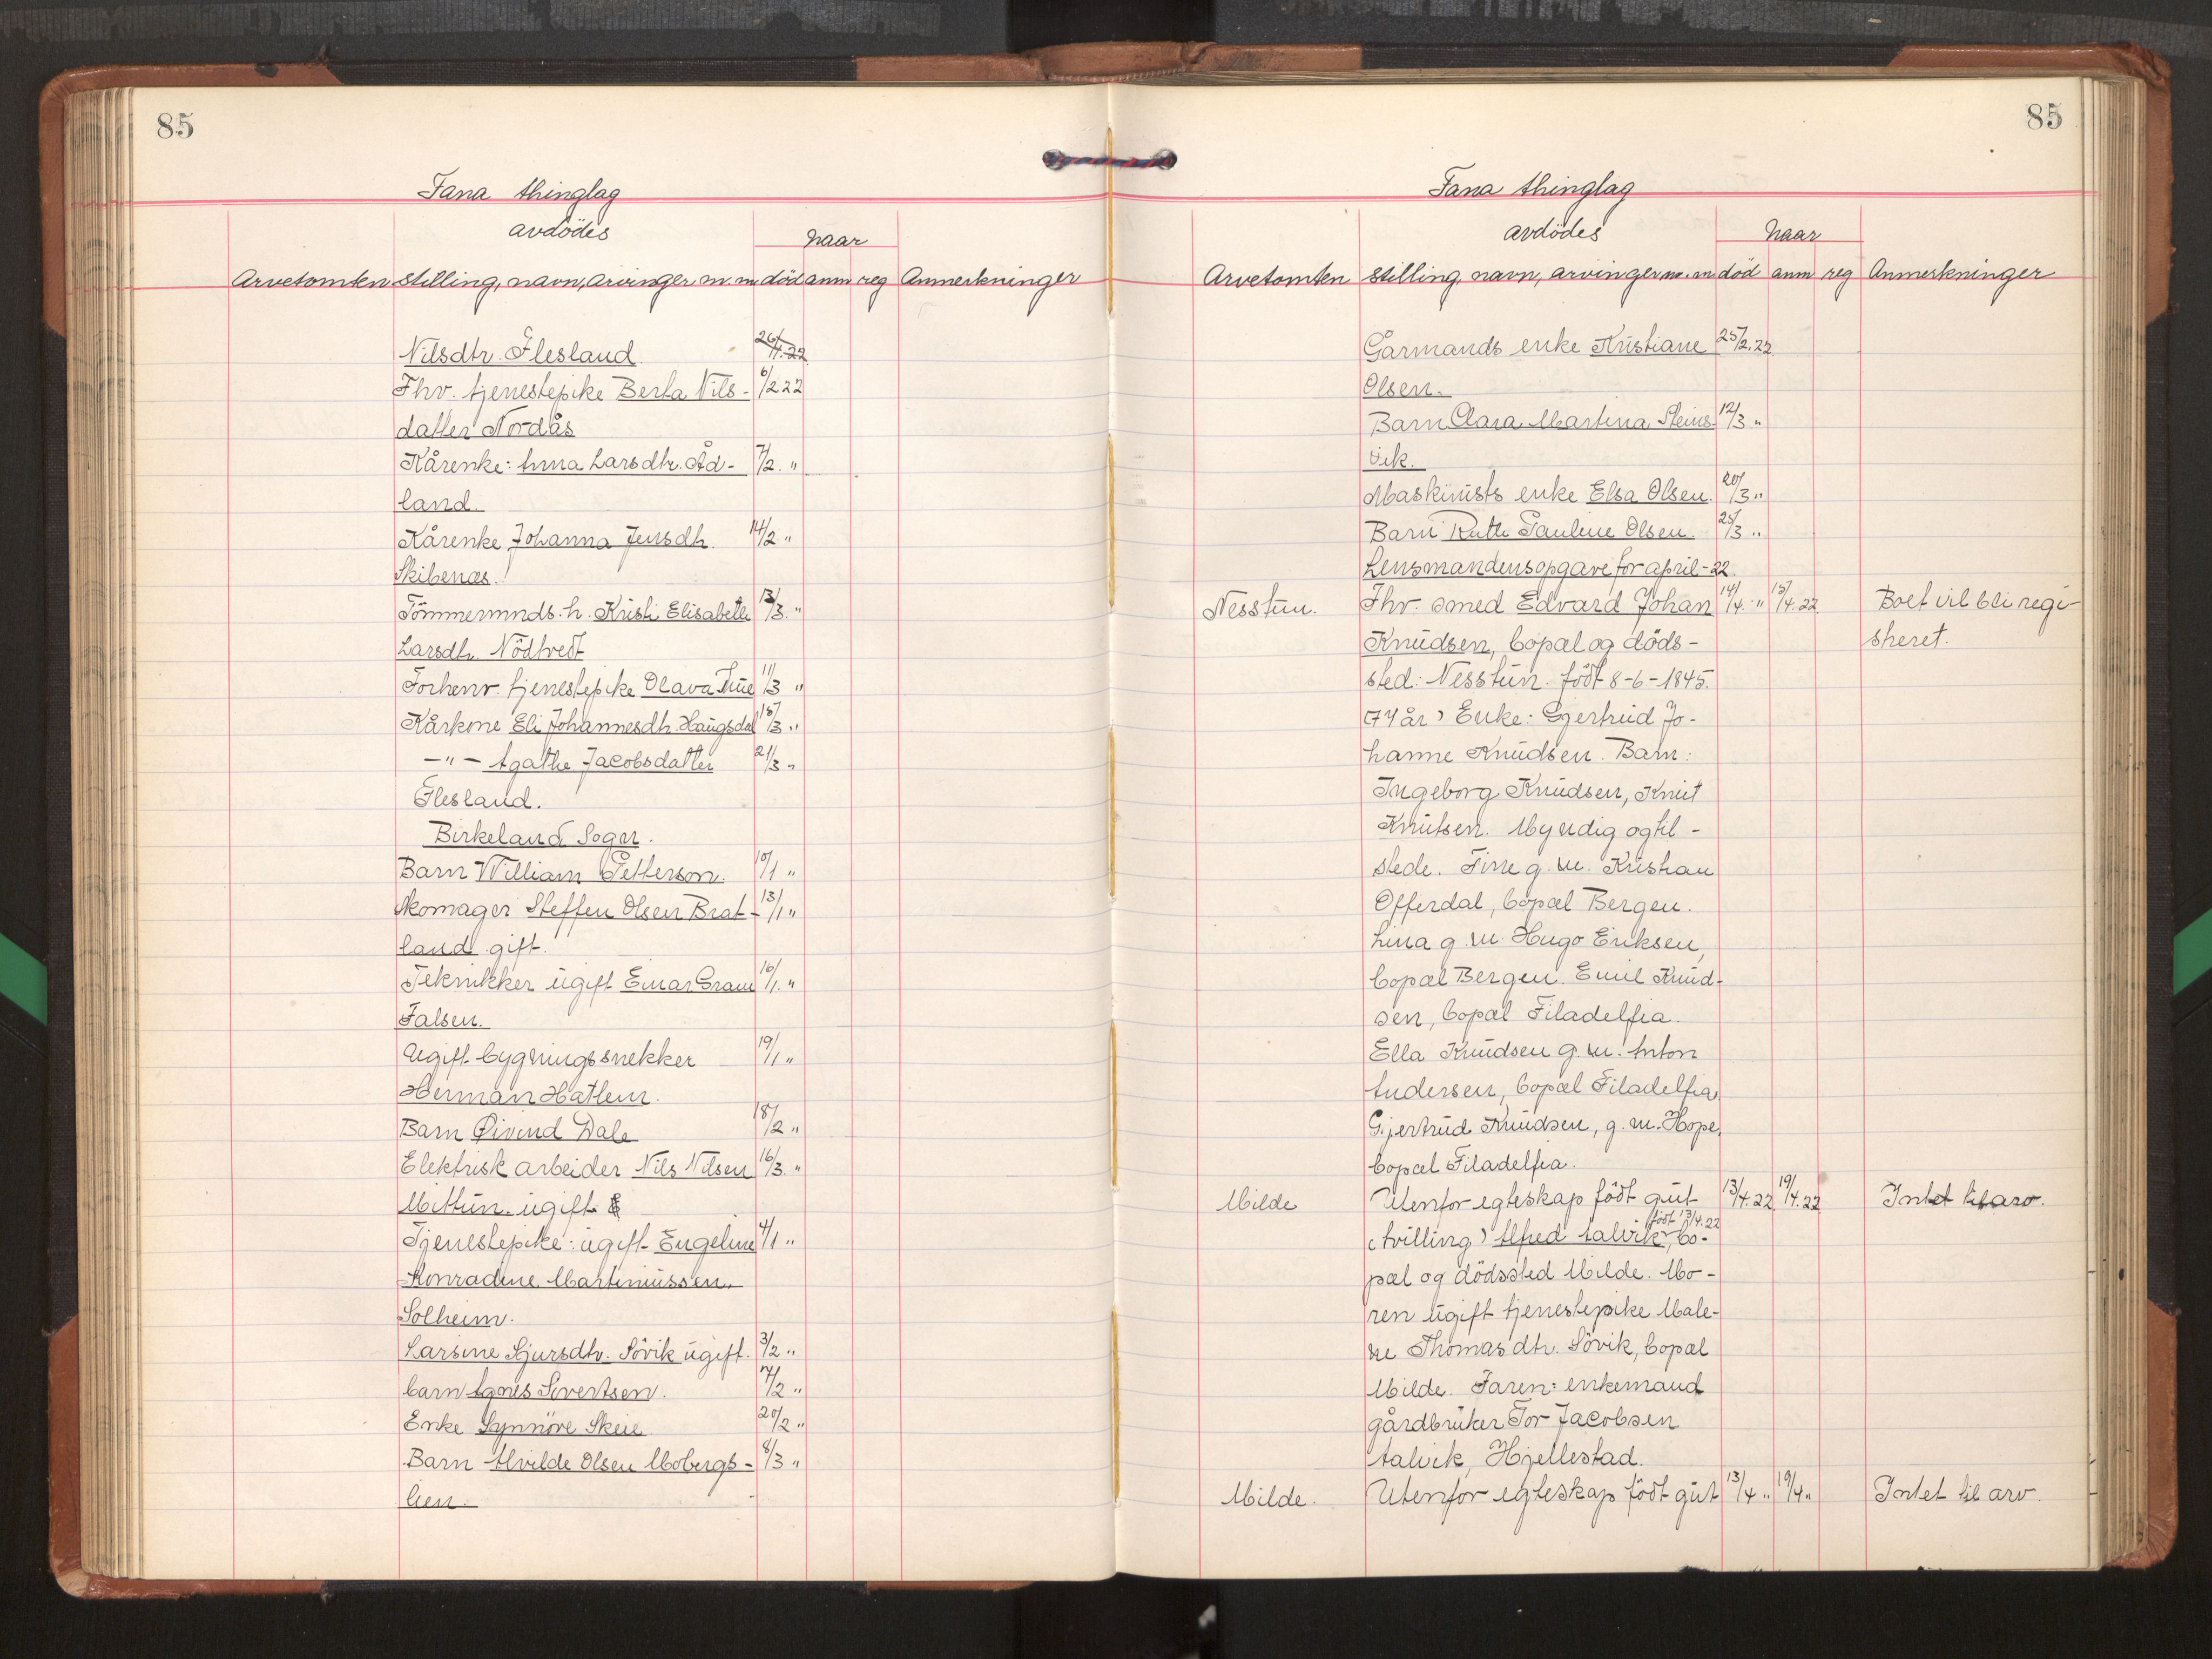 85
Fana thinglag
avdödes
naar
Arvetomten stilling, navn, arvinger m. m død anm reg Anmerkninger
Nilsdtr. Flesland 26/11.22
Fhv. tjenestepike Berta Nils- 6/2 22
datter Nordås
Kårenke: Anna Larsdtr. Åd- 7/2. "
land.
Kårenke Johanna Jensdtr. 14/2 "
Skibenæs.
Tömmermnds. h. Kristi Elisabeth 13/3. "
Larsdtr. Nödtvedt
Forhenv. tjenestepike Olava Tine 11/3 "
Kårkone Eli Johannesdtr. Haugsdal 15/3 "
-"- Agathe Jacobsdatter 21/3 "
Flesland.
Birkeland Sogn.
Barn William Petterson. 10/1 "
Skomager Steffen Olsen Brat- 13/1 "
land gift.
Teknikker ugift Einar Gram 16/1. "
Falsen.
Ugift bygningssnekker 19/1 "
Herman Hatlem.
Barn Øivind Dale 18/2 "
Elektrisk arbeider Nils Nilsen 16/3. "
Mittun. ugift
Tjenestepike: ugift Engeline 4/1 "
Konradine Martinussen.
Solheim.
Larsine Sjursdtr. Sövik ugift. 3/2 "
barn Agnes Sivertsen. 17/2 "
Enke Synnöve Skeie 20/2 "
Barn Alvilde Olsen Mobergs- 8/3 "
lien.
85
Fana thinglag
avdödes
Naar
Arvetomten stilling, navn, arvinger m. m død anm reg Anmerkninger
Garmands enke Kristiane 25/2.22
Olsen.
Barn Clara Martina Steins- 12/3 "
vik.
Maskinists enke Elsa Olsen. 20/3 "
Barn Ruth Pauline Olsen. 25/3 "
Lensmandens opgave for april-22.
Nesstun. Fhv. smed Edvard Johan 14/4. " 15/4.22 Boet vil bli regi-
Knudsen, bopæl og döds- streret.
sted: Nesstun. födt 8-6-1845.
(77 år) Enke: Gjertrud Jo-
hanne Knudsen. Barn:
Ingeborg Knudsen, Knut
Knutsen. Myndig og til-
stede. Fine g. m. Kristian
Offerdal, bopæl Bergen.
Lina g. m. Hugo Eriksen,
bopæl Bergen. Emil Knud-
sen, bopæl Filadelfia.
Ella Knudsen g. m. Anton
Andersen, bopæl Filadelfia
Gjertrud Knudsen, g. m. Hope,
bopæl Filadelfia.
Milde Utenfor egteskap födt gut 13/4.22 19/4.22 Intet til arv.
födt 13/4.22
(tvilling) Alfred Aalvik, bo-
pæl og dödssted Milde. Mo-
ren ugift tjenestepike Male-
ne Thomasdtr. Sövik, bopæl
Milde. Faren: enkemand
gårdbruker Tor Jacobsen
Aalvik, Hjellestad.
Milde. Utenfor egteskap födt gut 13/4 " 19/4 " Intet til arv.